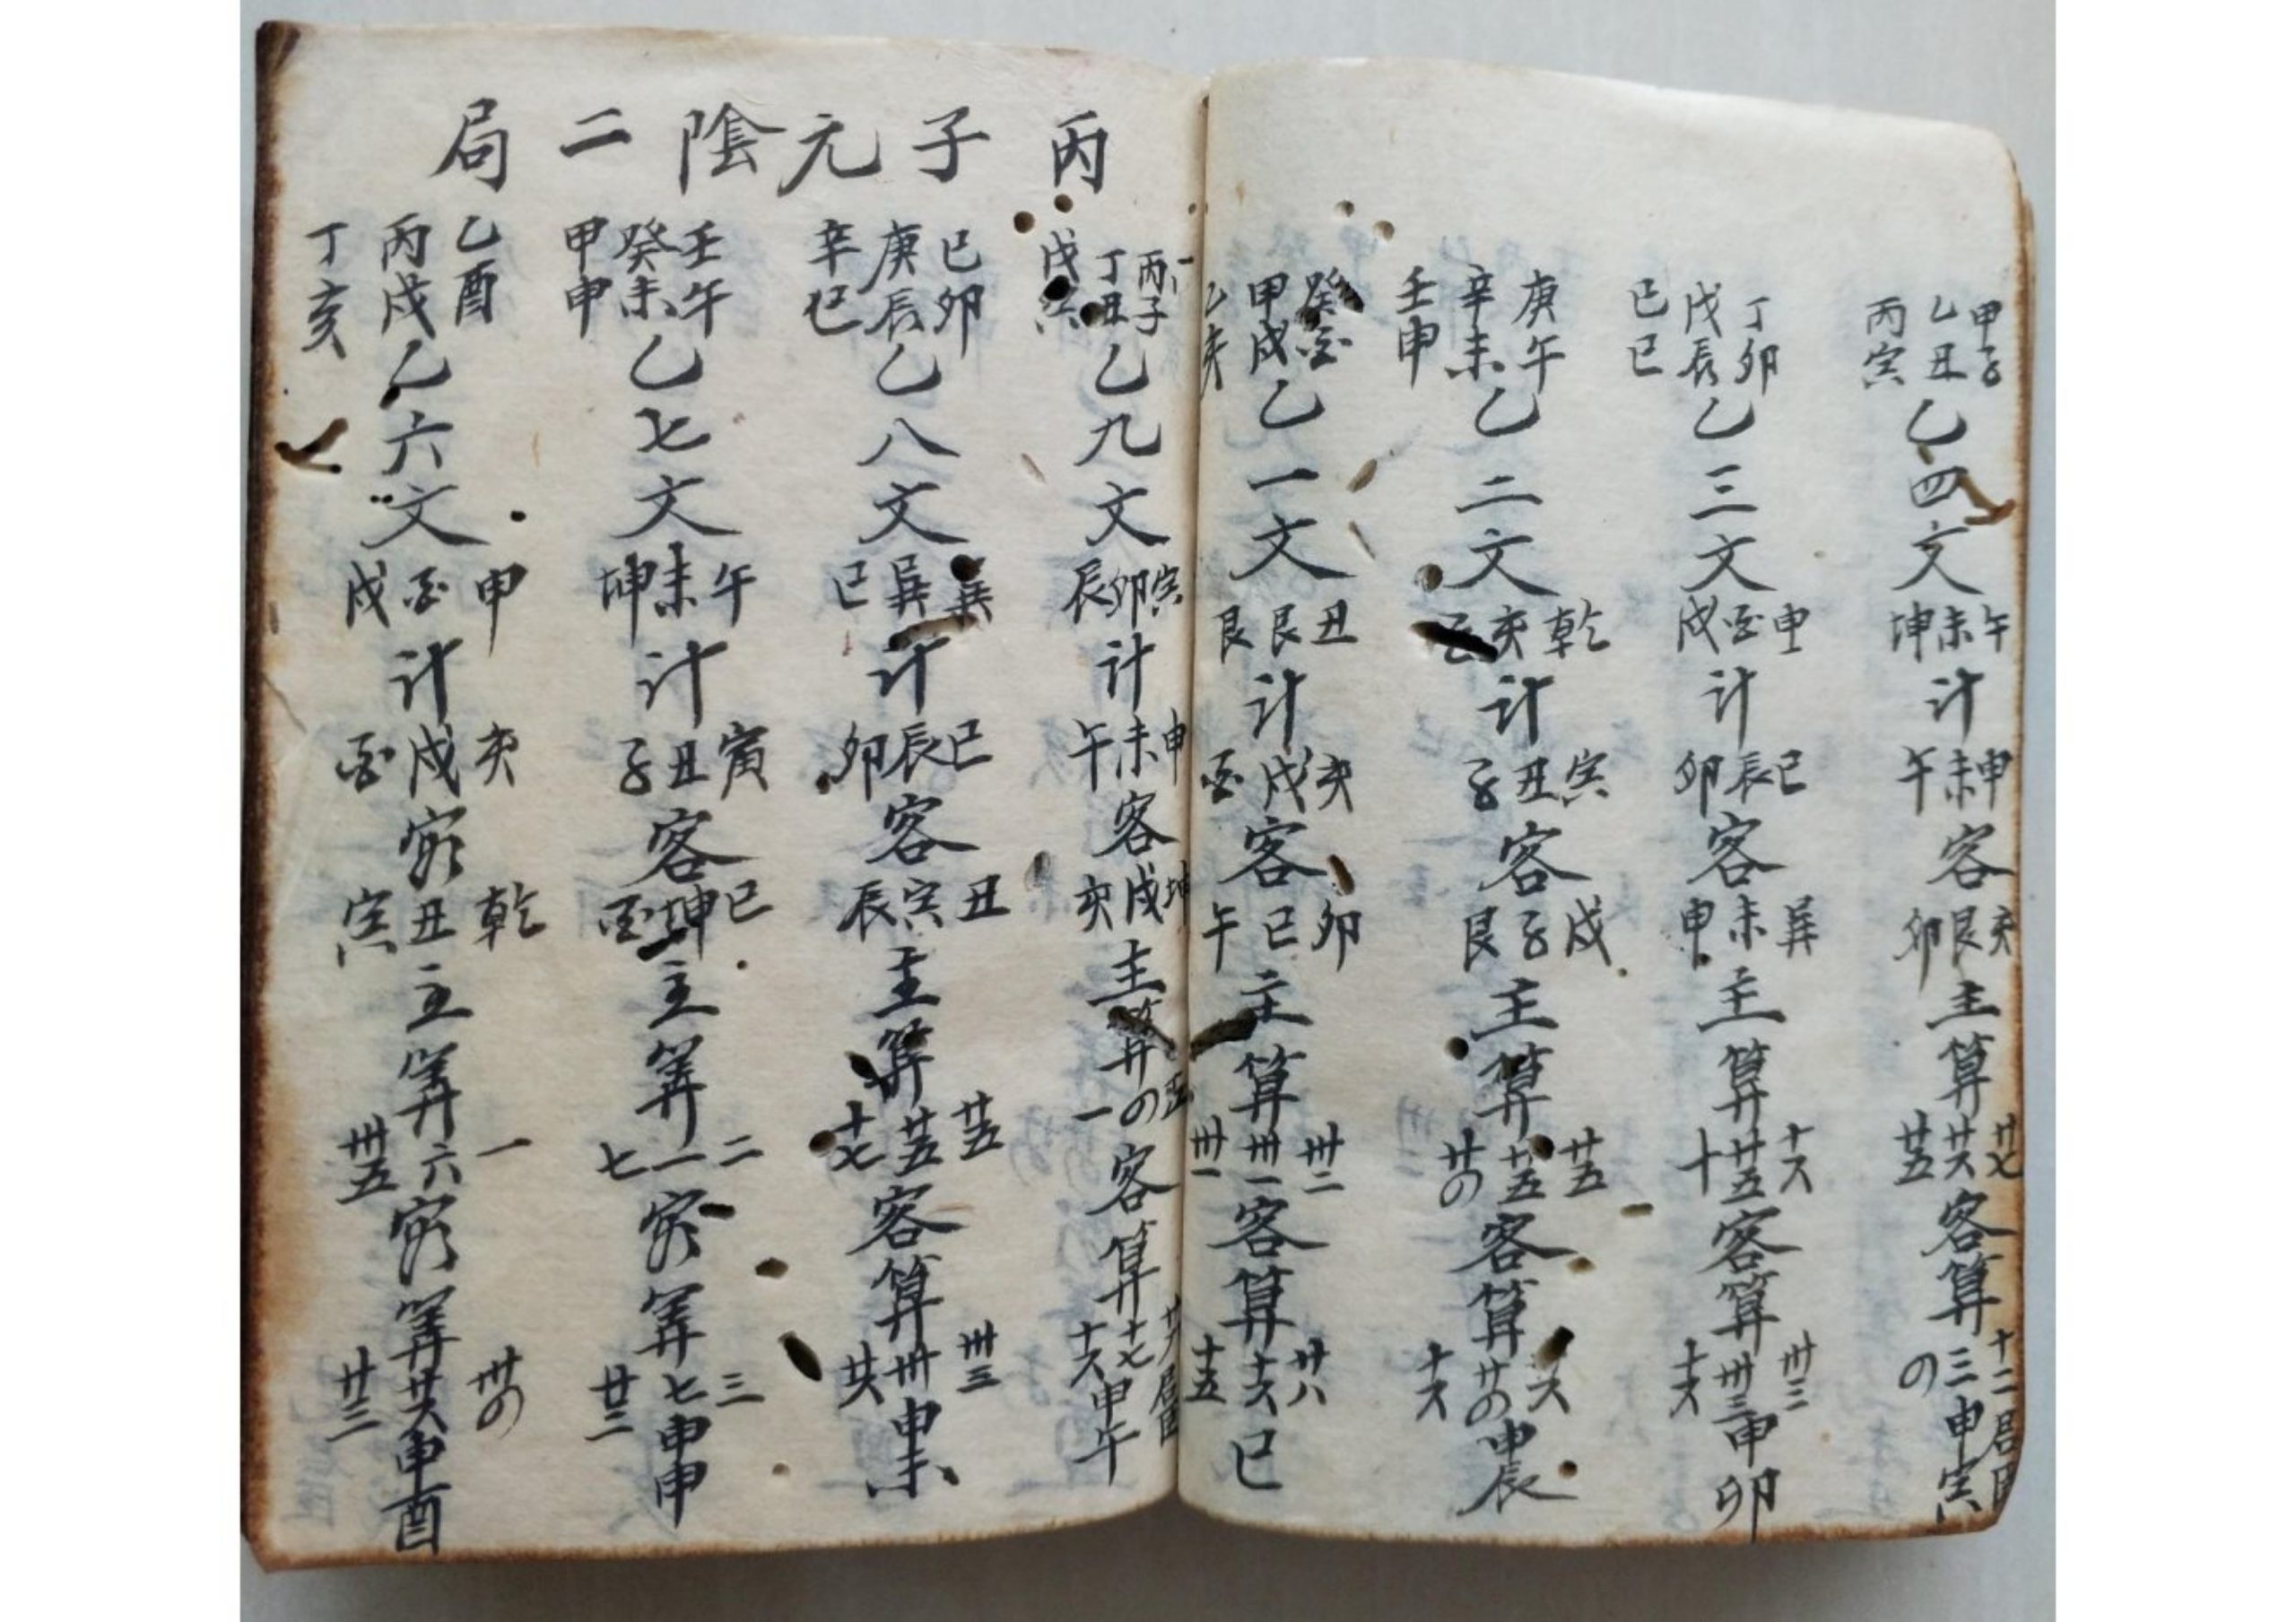 甲子 乙丑 丙寅 乙四文 午未坤 計 申未午 客 亥艮卯 主算 廿七 廿六 廿五 客算 十二 三 の 居 申寅
丁卯 戊辰 己巳 乙三文 申酉戌 計 巳辰卯 客 巽未申 主算 十六 廿五 十 客算 卅三 卅三 十六 申卯
庚午 辛未 壬申 乙二文 乾亥子 計 寅丑子 客 戌子艮 主算 廿五 廿五 廿の 客算 廿の 十六 申辰
癸酉 甲戌 乙亥 乙一文 丑艮艮 計 亥戌酉 客 卯巳午 主算 卅二 卅一 卅一 客算 廿八 十六 十五 巳
丙子元陰二局
丙子 丁丑 戊寅 乙九文 寅卯辰 計 申未午 客 坤戌亥 主算 五 の 一 客算 廿六 十七 十六 居 甲午
己卯 庚辰 辛巳 乙八文 巽巽巳 計 巳辰卯 客 丑寅辰 主算 廿五 廿五 十七 客算 卅三 卅 廿六 申未
壬午 癸未 甲申 乙七文 午未坤 計 寅丑子 客 巳坤酉 主算 二 一 七 客算 三 七 廿二 申申
乙酉 丙戌 丁亥 乙六文 申酉戌 計 亥戌酉 客 乾丑寅 主算 一 六 卅五 客算 廿の 廿六 廿三 申酉